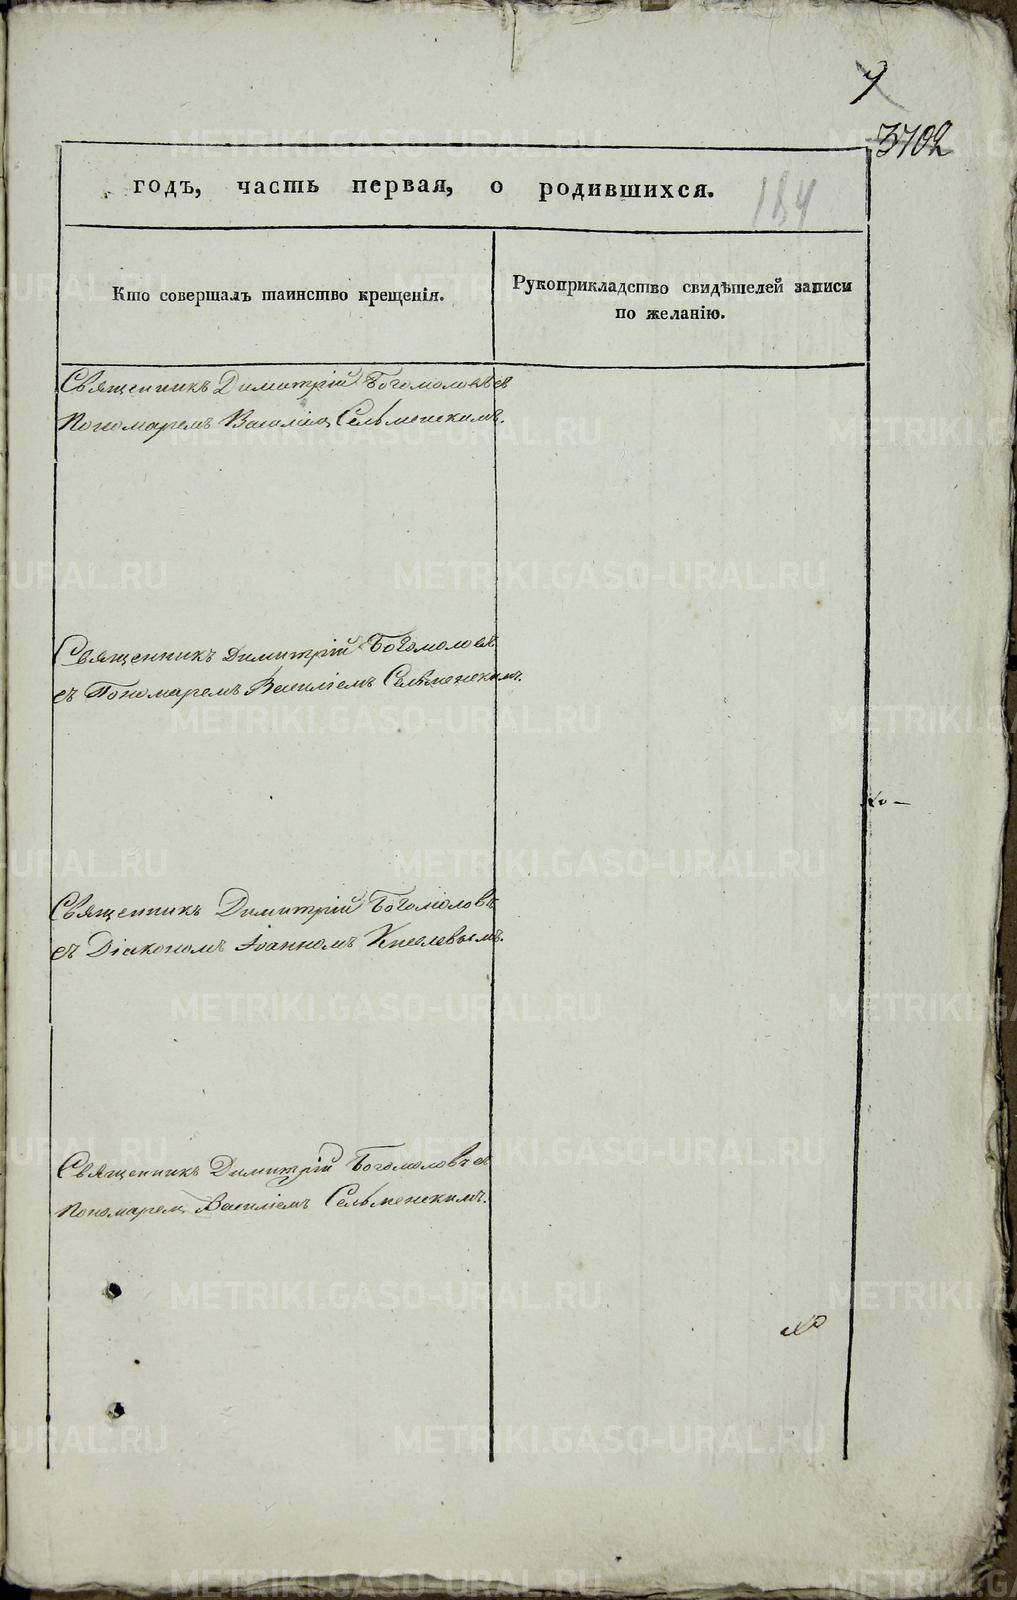 3702
годъ, часть первая, о родившихся.
184
Кто совершалъ таинство крещенія.
Рукоприкладство свидѣтелей записи
по желанію.
Священникъ Димитрій Богомоловъ съ
Пономаремъ Василіемъ Сельменскимъ.
Священникъ Димитрій Богомоловъ
съ Пономаремъ Василіемъ Сельменскимъ.
Священникъ Димитрій Богомоловъ
съ Діакономъ Іоанномъ Киселевымъ.
Священникъ Димитрій Богомоловъ съ
Пономаремъ Василіемъ Сельменскимъ.
METRIKI.GASO-URAL.RU